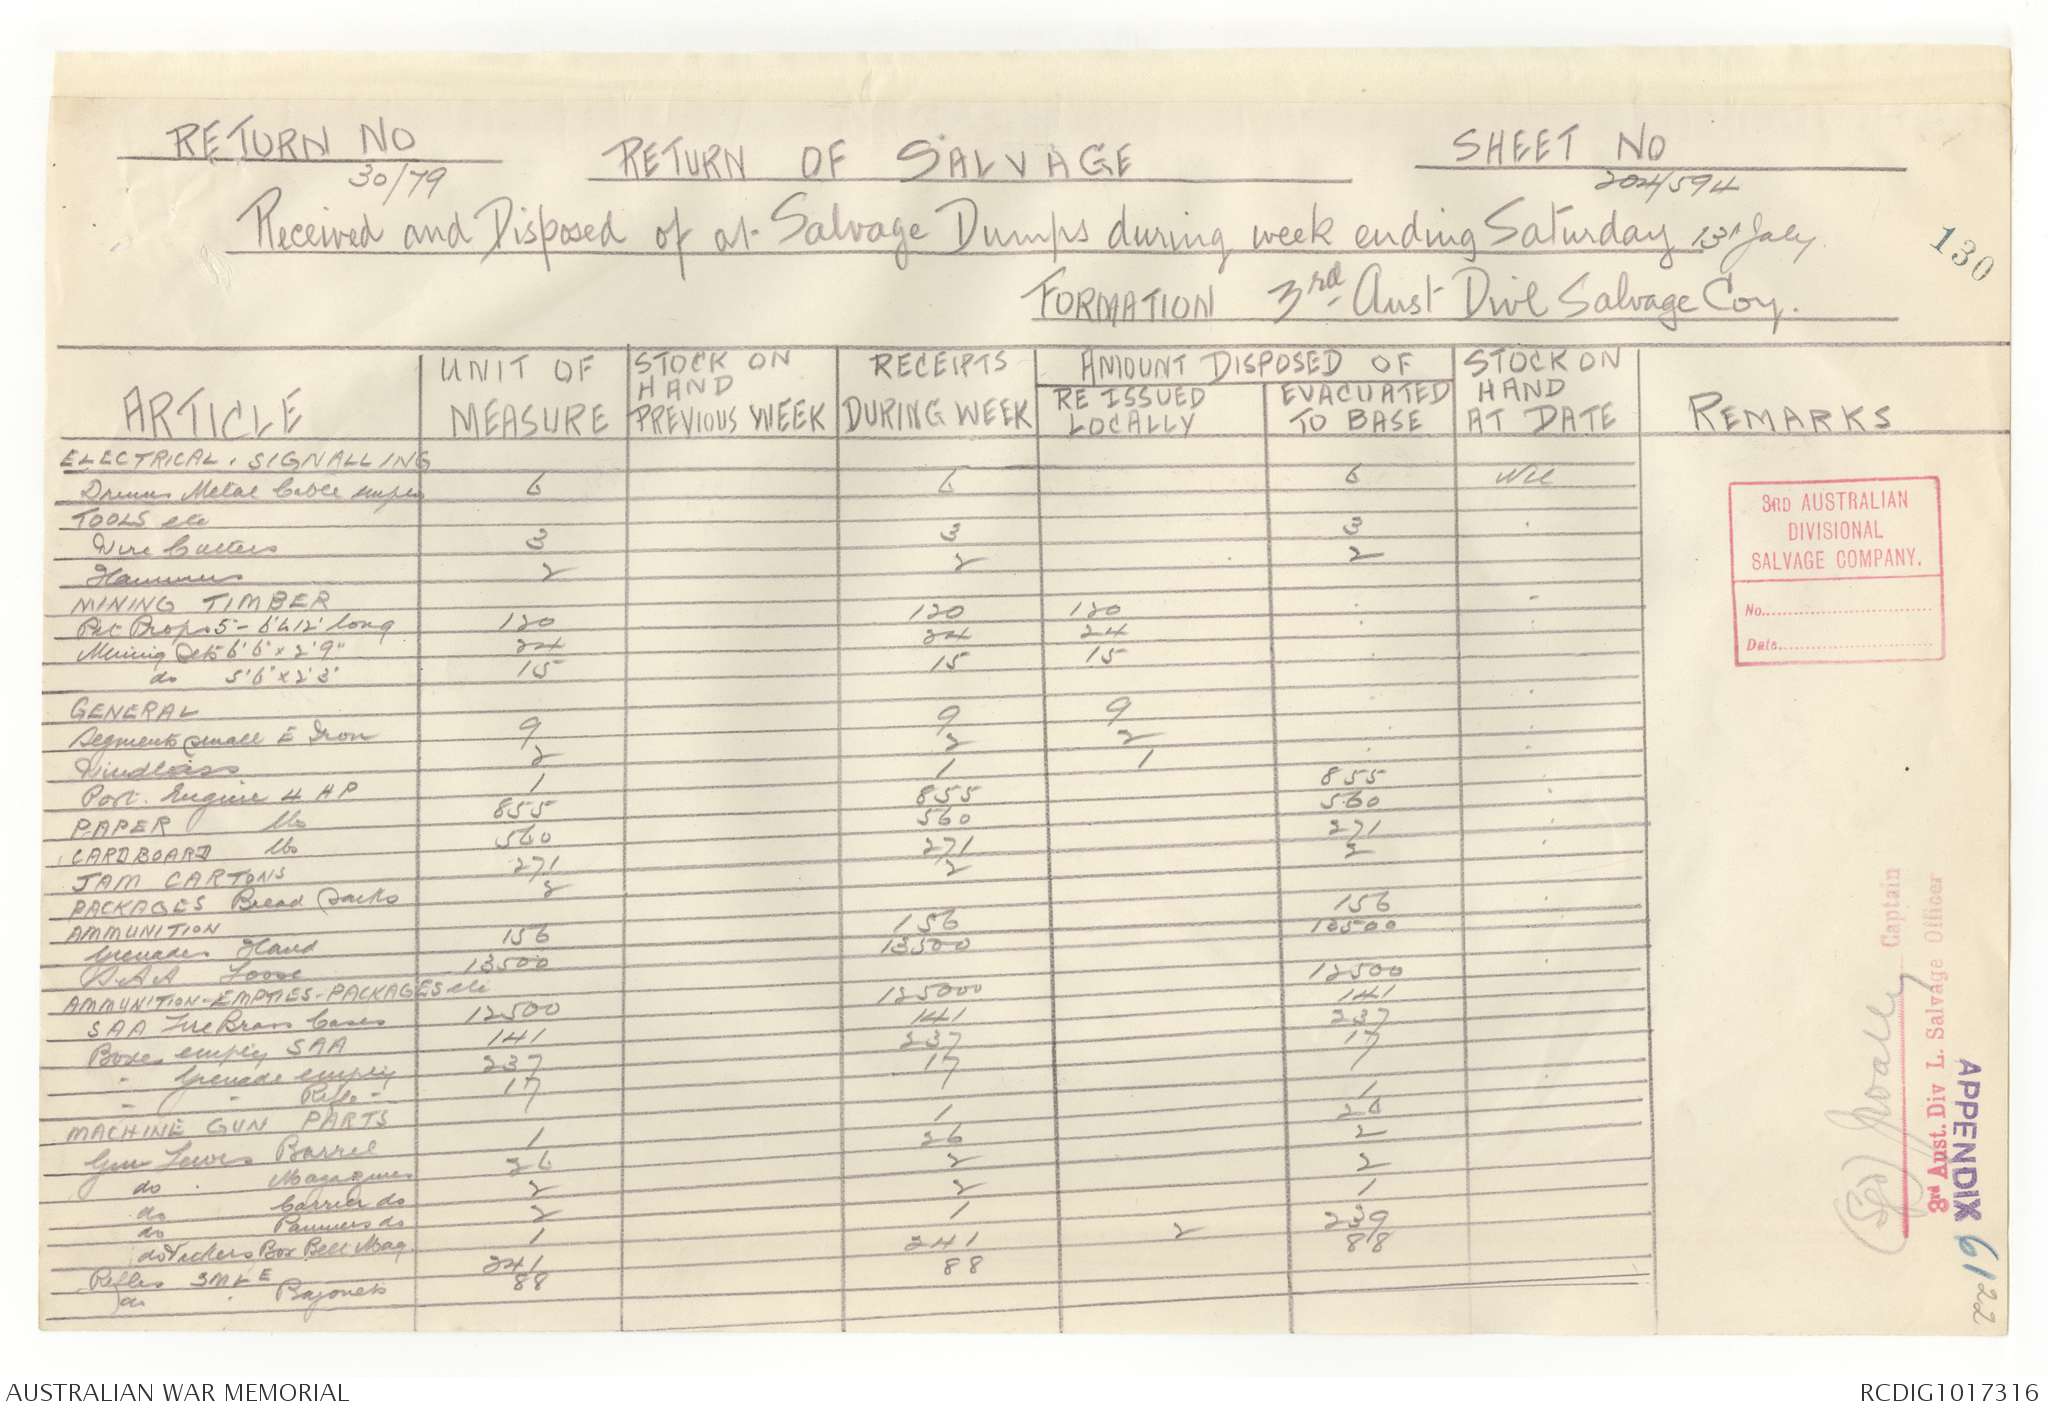 RETURN NO
30/79
RETURN OF SALVAGE
SHEET NO
204/594
Received and Disposed of at Salvage Dumps during week ending Saturday 13th July
130
FORMATION 3rd Aust Divl Salvage Coy.
ARTICLE UNIT OF MEASURE STOCK ON HAND PREVIOUS WEEK RECEIPTS DURING WEEK AMOUNT DISPOSED OF RE ISSUED LOCALLY EVACUATED TO BASE STOCK ON HAND AT DATE REMARKS
ELECTRICAL, SIGNALLING
Drums Metal Cable empty 6 6 6 Nil
TOOLS etc
Wire Cutters 3 3 3
Hammers 2 2 2
MINING TIMBER
Pit Props 5"- 6' & 12' long 120 120 120
Mining Sets 6' 6" x 2' 9" 24 24 24
do 5' 6" x 2' 3" 15 15 15
GENERAL
Segments small E Iron 9 9 9
Windlass 2 2 2
Port. Engine 4 HP 1 1 1
PAPER lbs 855 855 855
CARDBOARD lbs 560 560 560
JAM CARTONS 271 271 271
PACKAGES Bread Sacks 2 2 2
AMMUNITION
Grenades Hand 156 156 156
S.A.A Loose 13500 13500 13500
AMMUNITION-EMPTIES-PACKAGES etc
SAA Fire Brass Cases 12500 125000 12500
Boxes empty SAA 141 141 141
" Grenade empty 237 237 237
" " Rifle " 17 17 17
MACHINE GUN PARTS
Gun Lewis Barrel 1 1 1
do " Magazines 26 26 26
do Carrier do 2 2 2
do Panniers do 2 2 2
do Vickers Box Belt Mag. 1 1 1
Rifles SMLE 241 241 2 239
do " Bayonets 88 88 88
3RD AUSTRALIAN
DIVISIONAL
SALVAGE COMPANY.
No.
Date.
(Sgd) Captain
3rd Aust. Div L. Salvage Officer
APPENDIX 6/22
AUSTRALIAN WAR MEMORIAL
RCDIG1017316